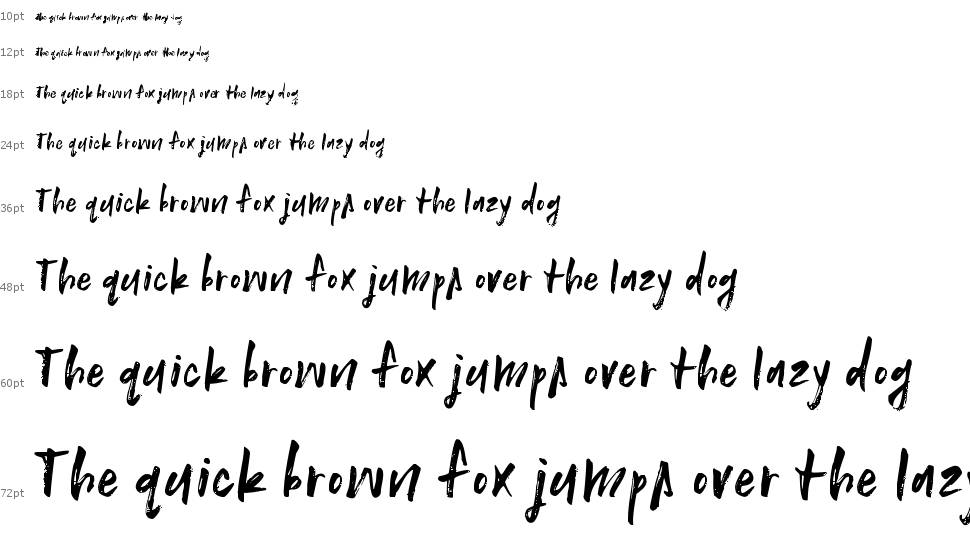 10pt The quick brown fox jumps over the lazy dog
12pt The quick brown fox jumps over the lazy dog
18pt The quick brown fox jumps over the lazy dog
24pt The quick brown fox jumps over the lazy dog
36pt The quick brown fox jumps over the lazy dog
48pt The quick brown fox jumps over the lazy dog
60pt The quick brown fox jumps over the lazy dog
72pt The quick brown fox jumps over the lazy